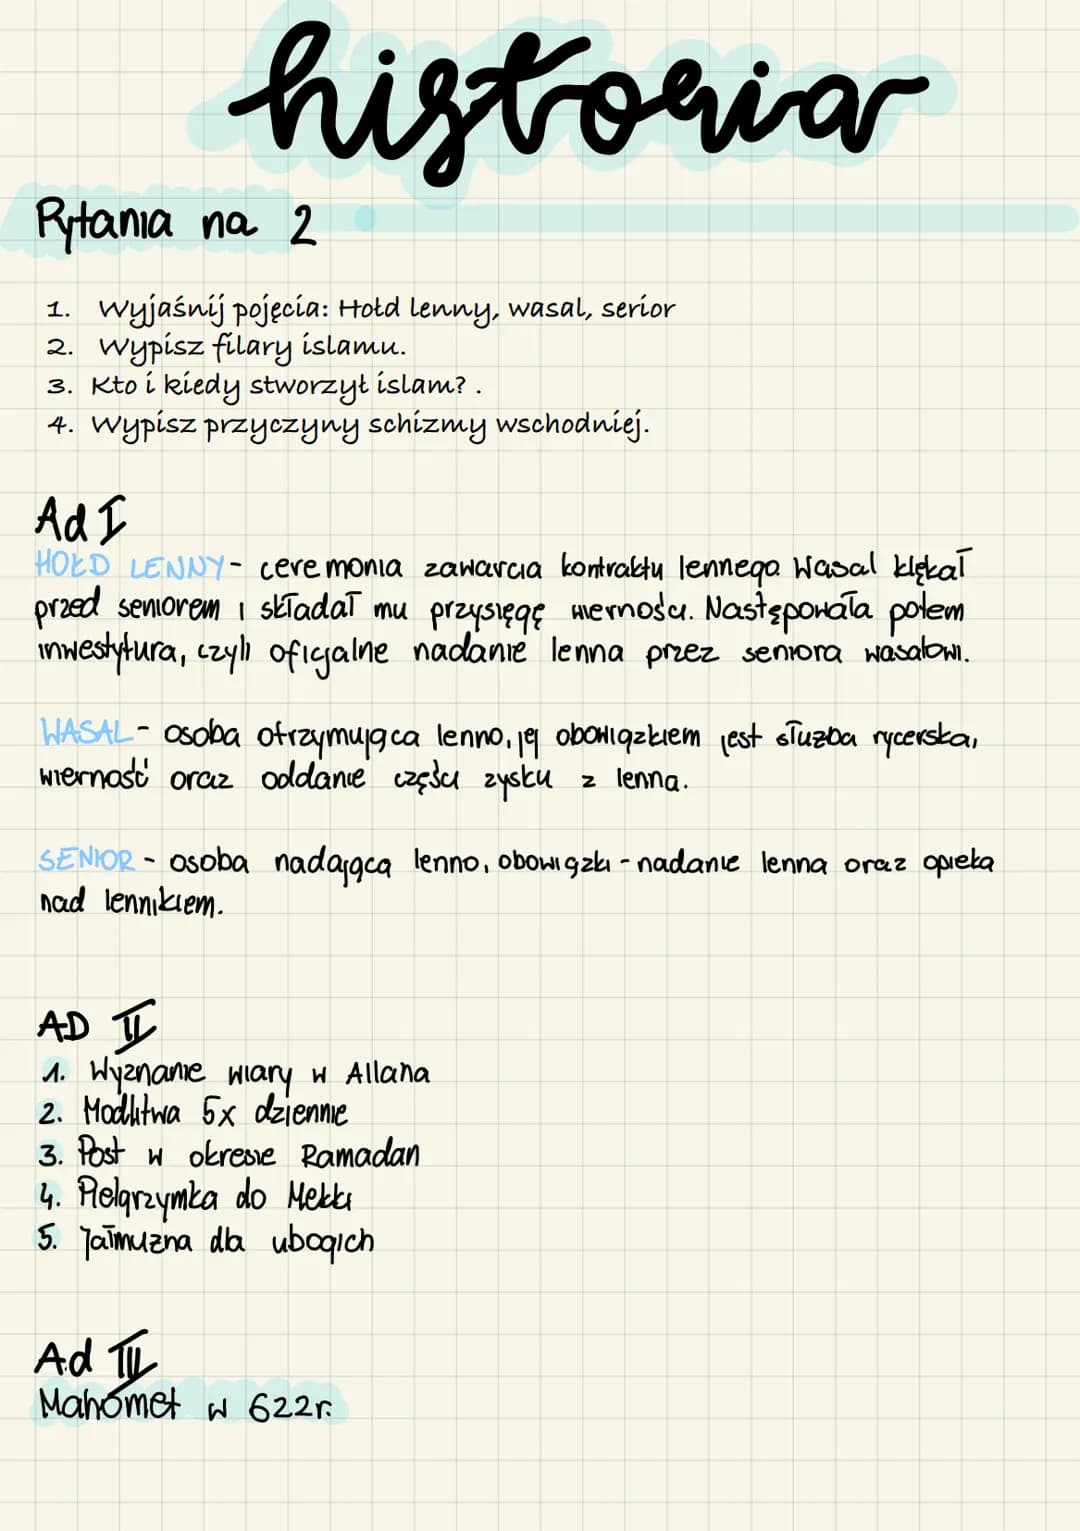 historia
Pytania na 2
1. Wyjaśnij pojęcia: Hołd lenny, wasal, serior
2. Wypisz filary islamu.
3. Kto i kiedy stworzył islam? .
4. Wypisz przyczyny schizmy wschodniej.
Ad I
HOŁD LENNY - ceremonia zawarcia kontraktu lennego. Wasal klękał
przed seniorem i składał mu przysięgę wierności. Następowała potem
inwestytura, czyli oficjalne nadanie lenna przez seniora wasalowi.
WASAL - osoba otrzymująca lenno, jej obowiązkiem jest służba rycerska,
wierność oraz oddanie części zysku z lenna.
SENIOR - osoba nadająca lenno, obowiązki - nadanie lenna oraz opieka
nad lennikiem.
AD II
1. Wyznanie wiary w Allaha
2. Modlitwa 5x dziennie
3. Post w okresie Ramadan
4. Pielgrzymka do Mekki
5. Jałmużna dla ubogich
Ad III
Mahomet w 622r.